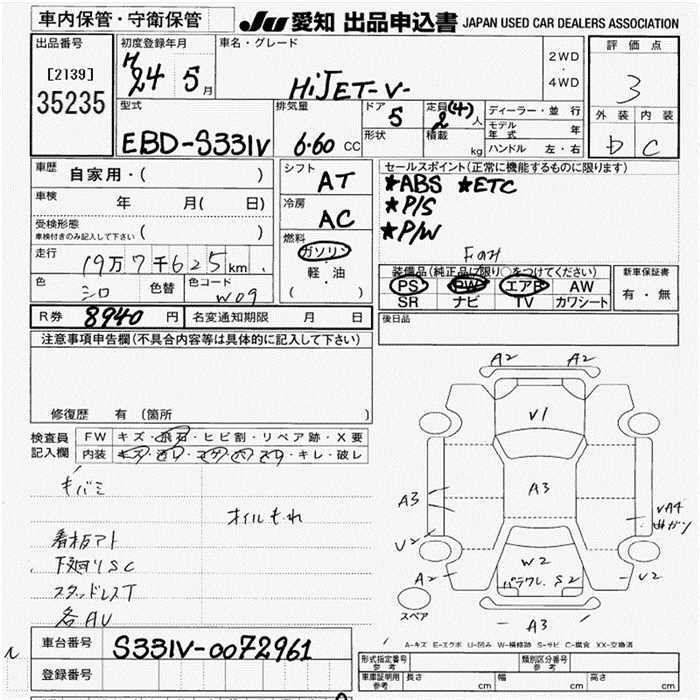 車内保管・守衛保管
JU 愛知 出品申込書 JAPAN USED CAR DEALERS ASSOCIATION
出品番号
[2139]
35235
初度登録年月
H 24 5月
車名・グレード
HiJET-V-
2WD
・
4WD
評価点
3
外装 内装
b C
型式
EBD-S331V
排気量
6.60 CC
ドア
5
形状
定員 (4)
2 人
積載
kg
ディーラー・並行
モデル年式 年
ハンドル 左・右
車歴
自家用・( )
車検
年 月( 日)
受検形態
車検付きのみ記入して下さい ( )
走行
19万7千625km
色
シロ
色替
色コード
W09
シフト
AT
冷房
AC
燃料
ガソリン
軽・油
( )
セールスポイント(正常に機能するものに限ります)
★ABS ★ETC
★P/S
★P/W
Fのみ
装備品(純正品に限り○をつけてください)
PS PW エアB AW
SR ナビ TV カワシート
新車保証書
有・無
R券 8940 円
名変通知期限 月 日
後日品
注意事項申告欄(不具合内容等は具体的に記入して下さい)
修復歴 有 (箇所 )
検査員記入欄
FW キズ・飛石・ヒビ割・リペア跡・X要
内装 キズ・ヨゴレ・コゲ・穴・スリ・キレ・破レ
キバミ
オイルもれ
看板アト
下廻りSC
スタッドレスT
各AU
A2 A2
V1
A3
A3
VA4
U2
W2
パラワレ S2
A2
V2
スペア
A3
A-キズ E-エクボ U-凹み W-補修跡 S-サビ C-腐食 XX-交換済
車台番号
S331V-0072961
登録番号
形式指定番号 参考
類別区分番号 参考
車庫証明用 参考
長さ cm
幅 cm
高さ cm